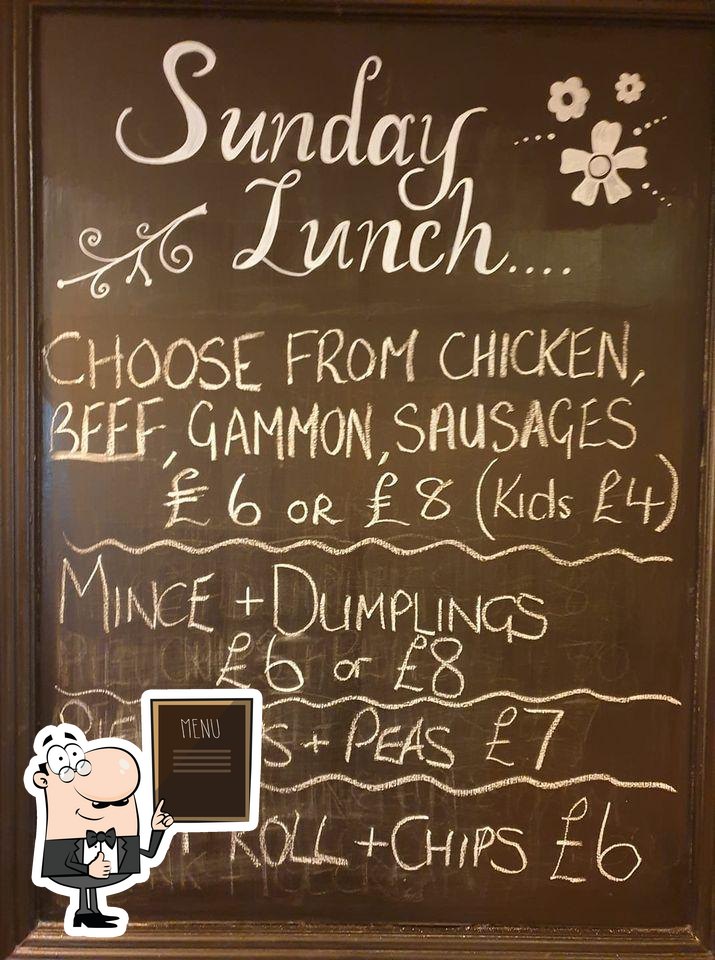 Sunday
Lunch....
CHOOSE FROM CHICKEN,
BEEF, GAMMON, SAUSAGES
£6 OR £8 (Kids £4)
MINCE + DUMPLINGS
£6 or £8
PIE S + PEAS £7
ROLL + CHIPS £6
MENU